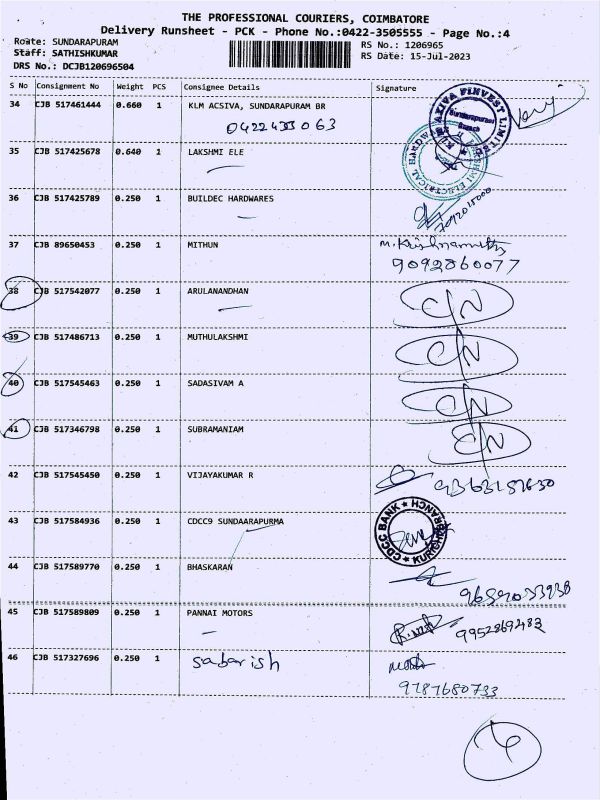 THE PROFESSIONAL COURIERS, COIMBATORE
Delivery Runsheet - PCK - Phone No.:0422-3505555 - Page No.:4
Route: SUNDARAPURAM
Staff: SATHISHKUMAR
DRS No.: DCJB120696504
RS No.: 1206965
RS Date: 15-Jul-2023
S No Consignment No Weight PCS Consignee Details Signature
34 CJB 517461444 0.660 1 KLM ACSIVA, SUNDARAPURAM BR
Sundarapuram Branch
35 CJB 517425678 0.640 1 LAKSHMI ELE
36 CJB 517425789 0.250 1 BUILDEC HARDWARES
37 CJB 89650453 0.250 1 MITHUN
9092860077
38 CJB 517542077 0.250 1 ARULANANDHAN C/N
39 CJB 517486713 0.250 1 MUTHULAKSHMI C/N
40 CJB 517545463 0.250 1 SADASIVAM A C/N
41 CJB 517346798 0.250 1 SUBRAMANIAM C/N
42 CJB 517545450 0.250 1 VIJAYAKUMAR R
43 CJB 517584936 0.250 1 CDCC9 SUNDAARAPURMA
CDCC BANK
44 CJB 517589770 0.250 1 BHASKARAN
45 CJB 517589809 0.250 1 PANNAI MOTORS
9952869483
46 CJB 517327696 0.250 1 Sabarish
9787680733